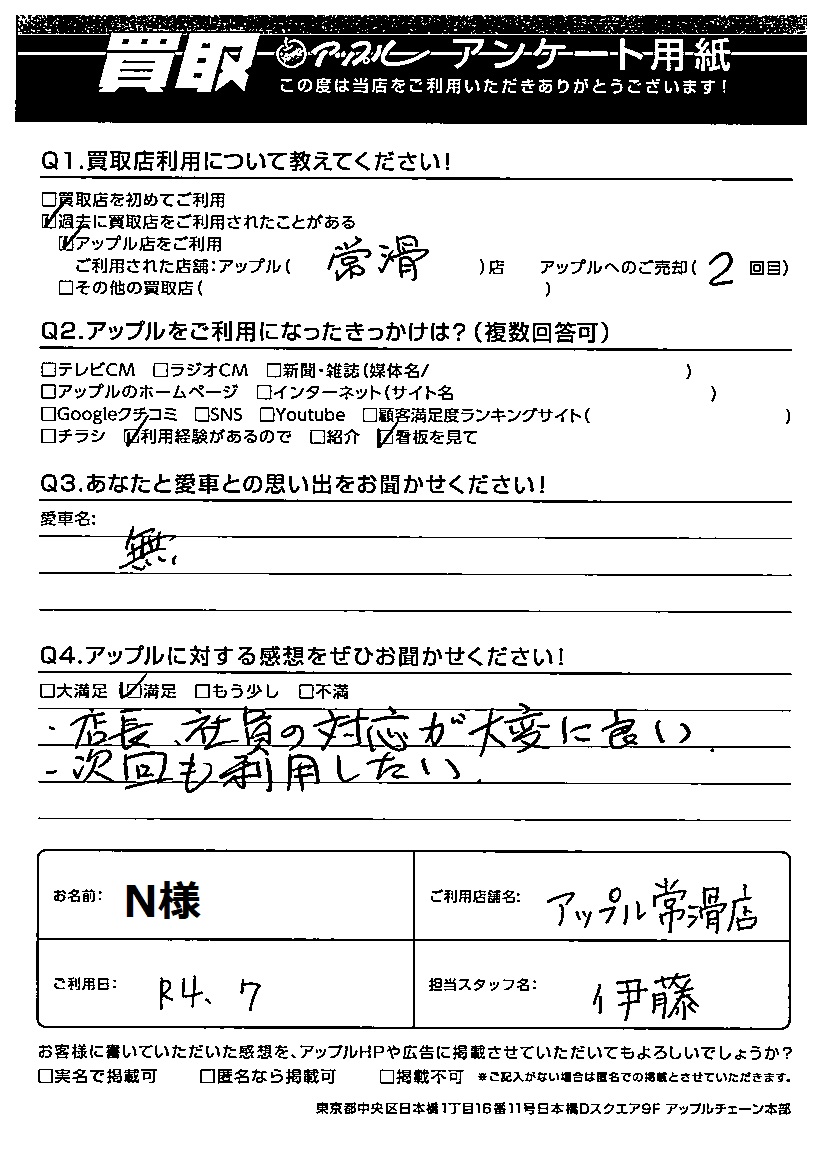 買取 アップル アンケート用紙
この度は当店をご利用いただきありがとうございます!
Q1.買取店利用について教えてください!
□買取店を初めてご利用
☑過去に買取店をご利用されたことがある
☑アップル店をご利用
ご利用された店舗:アップル( 常滑 )店 アップルへのご売却( 2 回目)
□その他の買取店( )
Q2.アップルをご利用になったきっかけは?(複数回答可)
□テレビCM □ラジオCM □新聞・雑誌(媒体名/ )
□アップルのホームページ □インターネット(サイト名 )
□Googleクチコミ □SNS □Youtube □顧客満足度ランキングサイト( )
□チラシ ☑利用経験があるので □紹介 ☑看板を見て
Q3.あなたと愛車との思い出をお聞かせください!
愛車名:
無
Q4.アップルに対する感想をぜひお聞かせください!
□大満足 ☑満足 □もう少し □不満
・店長、社員の対応が大変に良い.
-次回も利用したい.
お名前: N様 ご利用店舗名: アップル常滑店
ご利用日: R4、7 担当スタッフ名: 伊藤
お客様に書いていただいた感想を、アップルHPや広告に掲載させていただいてもよろしいでしょうか?
□実名で掲載可 □匿名なら掲載可 □掲載不可 ※ご記入がない場合は匿名での掲載とさせていただきます。
東京都中央区日本橋1丁目16番11号日本橋Dスクエア9F アップルチェーン本部